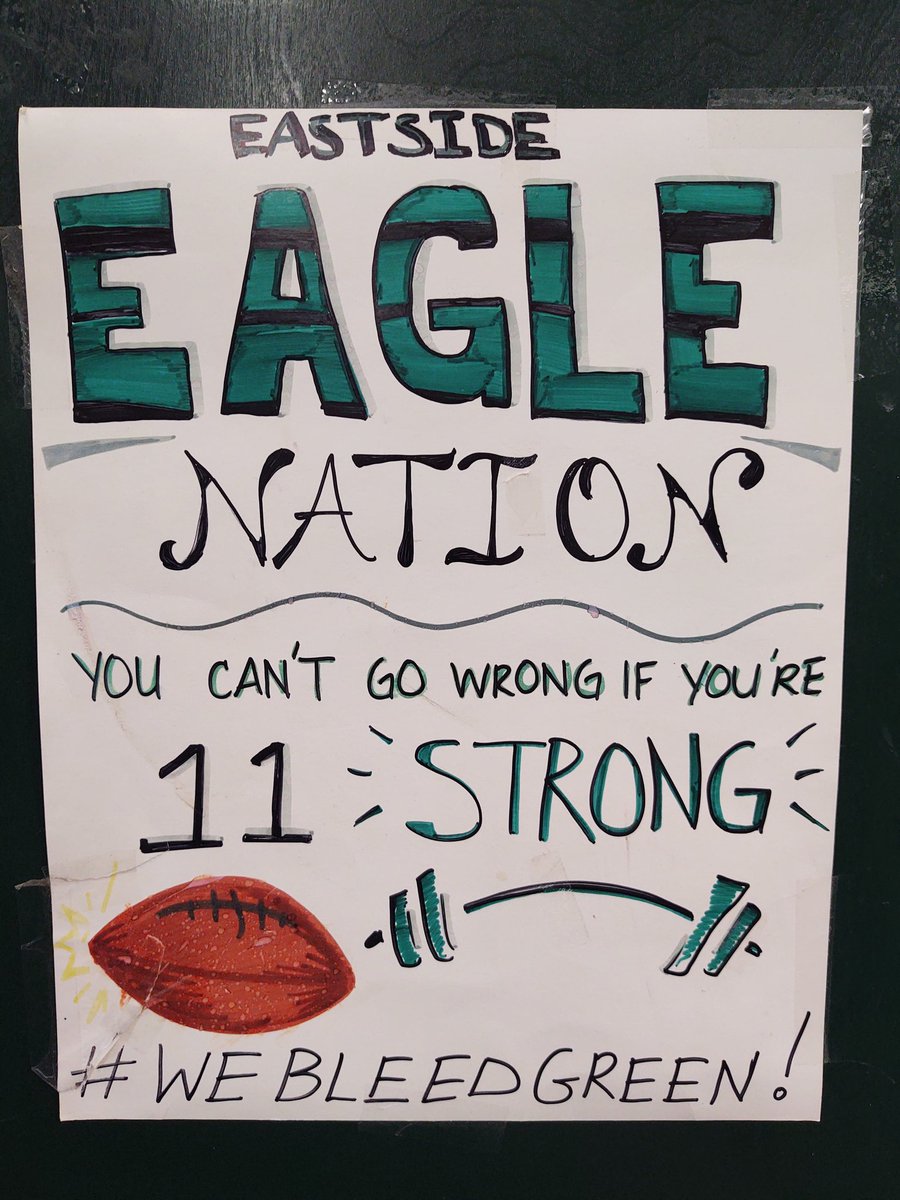 EASTSIDE
EAGLE
NATION
YOU CAN'T GO WRONG IF YOU'RE
11 STRONG
#WEBLEEDGREEN!